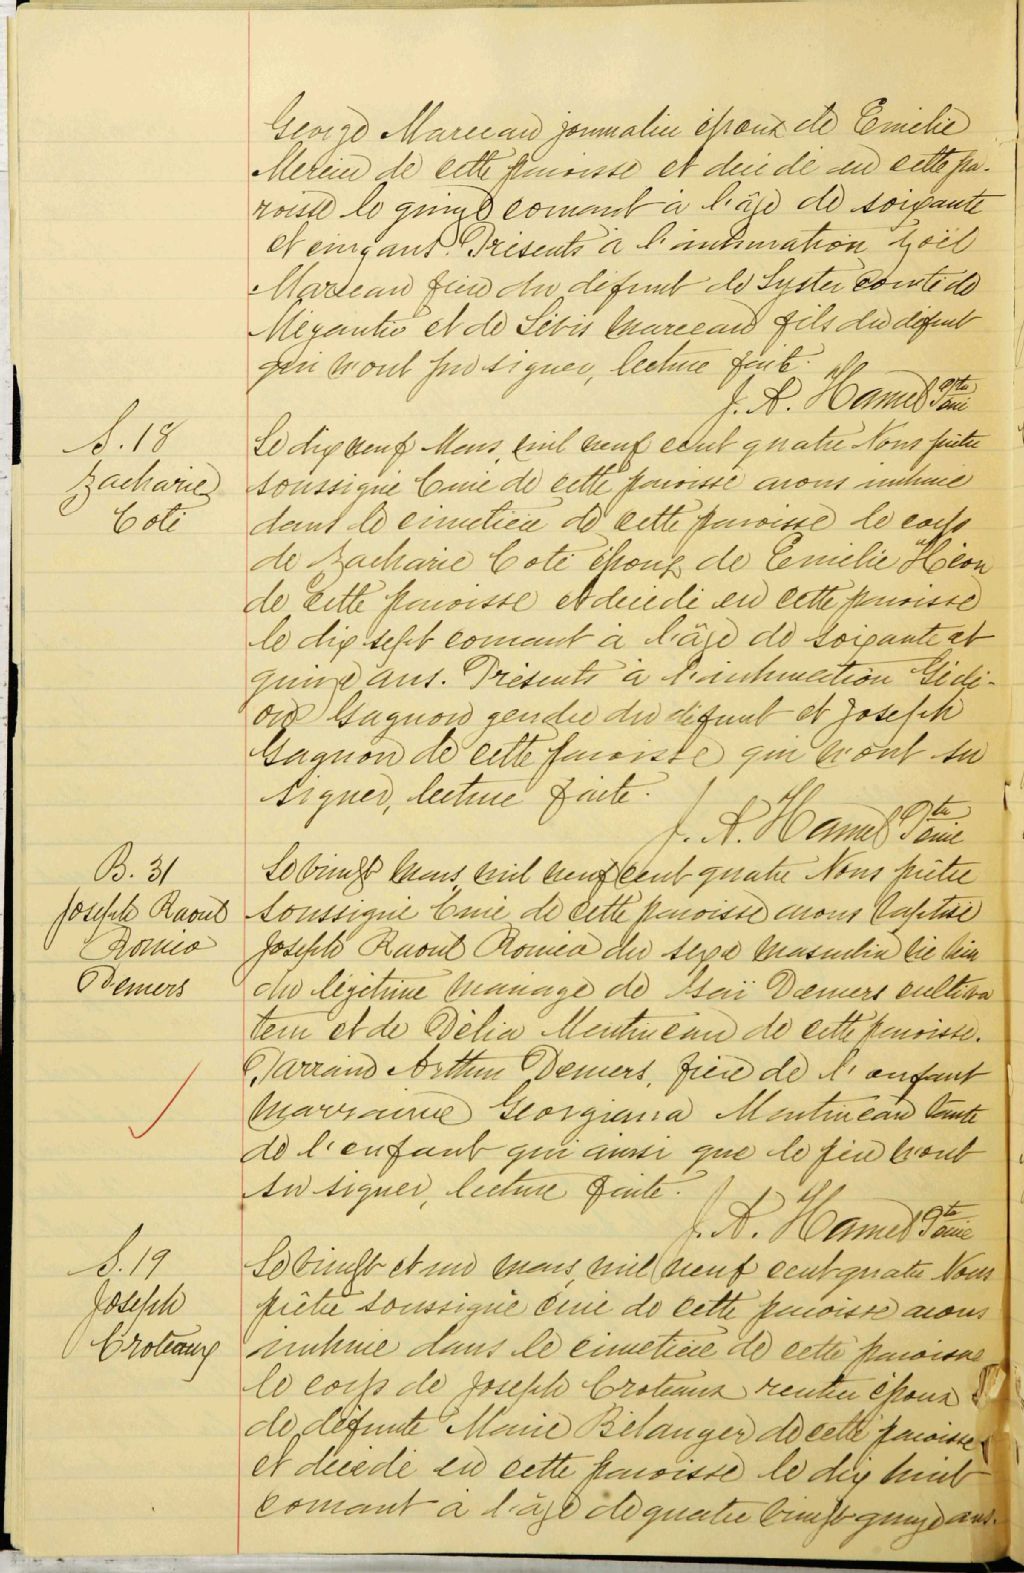 George Marceau journalier époux de Emélie
Mercier de cette paroisse et décédé en cette pa-
roisse le quinze courant à l'âge de soixante
et cinq ans. Présents à l'inhumation Zoël
Marceau frère du défunt de Lyster comté de
Mégantic et de Lévis Marceau fils du défunt
qui n'ont pu signer, lecture faite.
J. A. Hamel Ptre Curé
S. 18
Zacharie
Coté
Le dix neuf Mars, mil neuf cent quatre Nous prêtre
soussigné Curé de cette paroisse avons inhumé
dans le cimetière de cette paroisse le corps
de Zacharie Coté époux de Emélie Héon
de cette paroisse et décédé en cette paroisse
le dix sept courant à l'âge de soixante et
quinze ans. Présents à l'inhumation Gédé-
on Gagnon gendre du défunt et Joseph
Gagnon de cette paroisse qui n'ont su
signer, lecture faite.
J. A. Hamel Ptre Curé
B. 31
Joseph Raoul
Roméo
Demers
Le vingt Mars, mil neuf cent quatre Nous prêtre
soussigné Curé de cette paroisse avons baptisé
Joseph Raoul Roméo du sexe masculin né hier
du légitime mariage de Isaï Demers cultiva
teur et de Délia Martineau de cette paroisse.
Parrain Arthur Demers, frère de l'enfant
marraine Georgianna Martineau tante
de l'enfant qui ainsi que le père n'ont
su signer, lecture faite.
J. A. Hamel Ptre Curé
S. 19
Joseph
Croteaux
Le vingt et un Mars, mil neuf cent quatre Nous
prêtre soussigné curé de cette paroisse avons
inhumé dans le cimetière de cette paroisse
le corps de Joseph Croteaux rentier époux
de défunte Marie Bélanger de cette paroisse
et décédé en cette paroisse le dix huit
courant à l'âge de quatre vingt quinze ans.